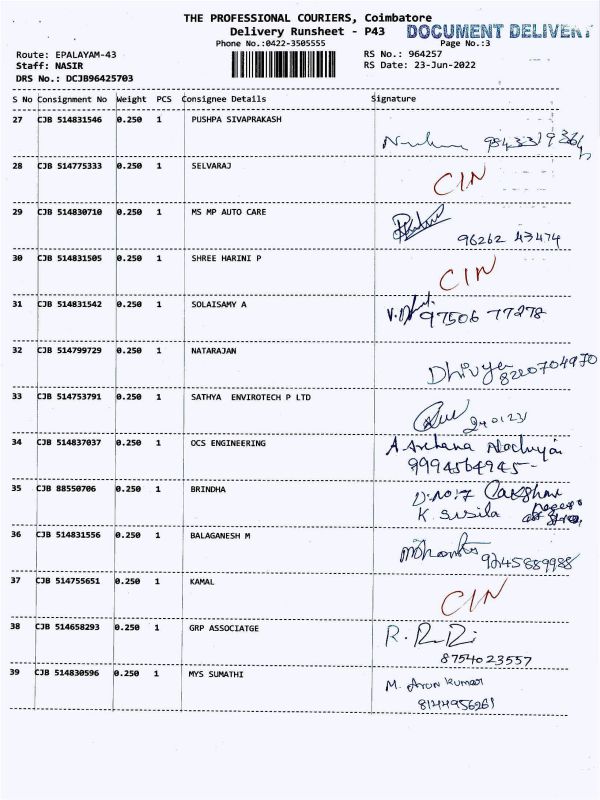 THE PROFESSIONAL COURIERS, Coimbatore
Delivery Runsheet - P43
DOCUMENT DELIVERY
Phone No.:0422-3505555
Page No.:3
Route: EPALAYAM-43
RS No.: 964257
Staff: NASIR
RS Date: 23-Jun-2022
DRS No.: DCJB96425703
S No Consignment No Weight PCS Consignee Details Signature
27 CJB 514831546 0.250 1 PUSHPA SIVAPRAKASH
28 CJB 514775333 0.250 1 SELVARAJ
CIN
29 CJB 514830710 0.250 1 MS MP AUTO CARE
96262 43474
30 CJB 514831505 0.250 1 SHREE HARINI P
CIN
31 CJB 514831542 0.250 1 SOLAISAMY A
97506 77278
32 CJB 514799729 0.250 1 NATARAJAN
Dhivya
8220704970
33 CJB 514753791 0.250 1 SATHYA ENVIROTECH P LTD
34 CJB 514837037 0.250 1 OCS ENGINEERING
A Archana
9994564945
35 CJB 88550706 0.250 1 BRINDHA
D.no:7
K. Susila
36 CJB 514831556 0.250 1 BALAGANESH M
9245889988
37 CJB 514755651 0.250 1 KAMAL
CIN
38 CJB 514658293 0.250 1 GRP ASSOCIATGE
8754023557
39 CJB 514830596 0.250 1 MYS SUMATHI
M. Arun kumar
8144956261